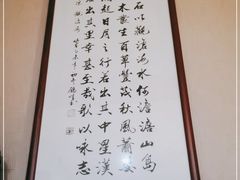 石以觀滄海水何澹澹山島
木叢生百草豐茂秋風蕭
起日月之行若出其中星漢
出其里幸甚至哉歌以詠志